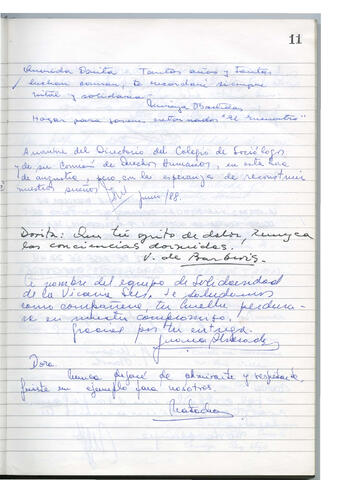 11
Querida Dorita Tantos años y tantas
luchas común, te recordaré siempre
vital y solidaria.
Hogar para jóvenes "El Encuentro"
A nombre del Directorio del Colegio de Sociólogos
y de su Comisión de Derechos Humanos, en esta hora
de angustia, pero con la esperanza de reconstruir
nuestros sueños
Junio/88.
Dorita: Que tu grito de dolor, remezca
las conciencias dormidas.
V. de Barberis.
A nombre del equipo de Solidaridad
de la Vicaría Sur, te saludamos
como compañera, tu huella perdura-
rá en nuestro compromiso.
Gracias por tu entrega.
Juana
Dora.
Nunca dejaré de admirarte y respetarte,
fuiste un ejemplo para nosotros.